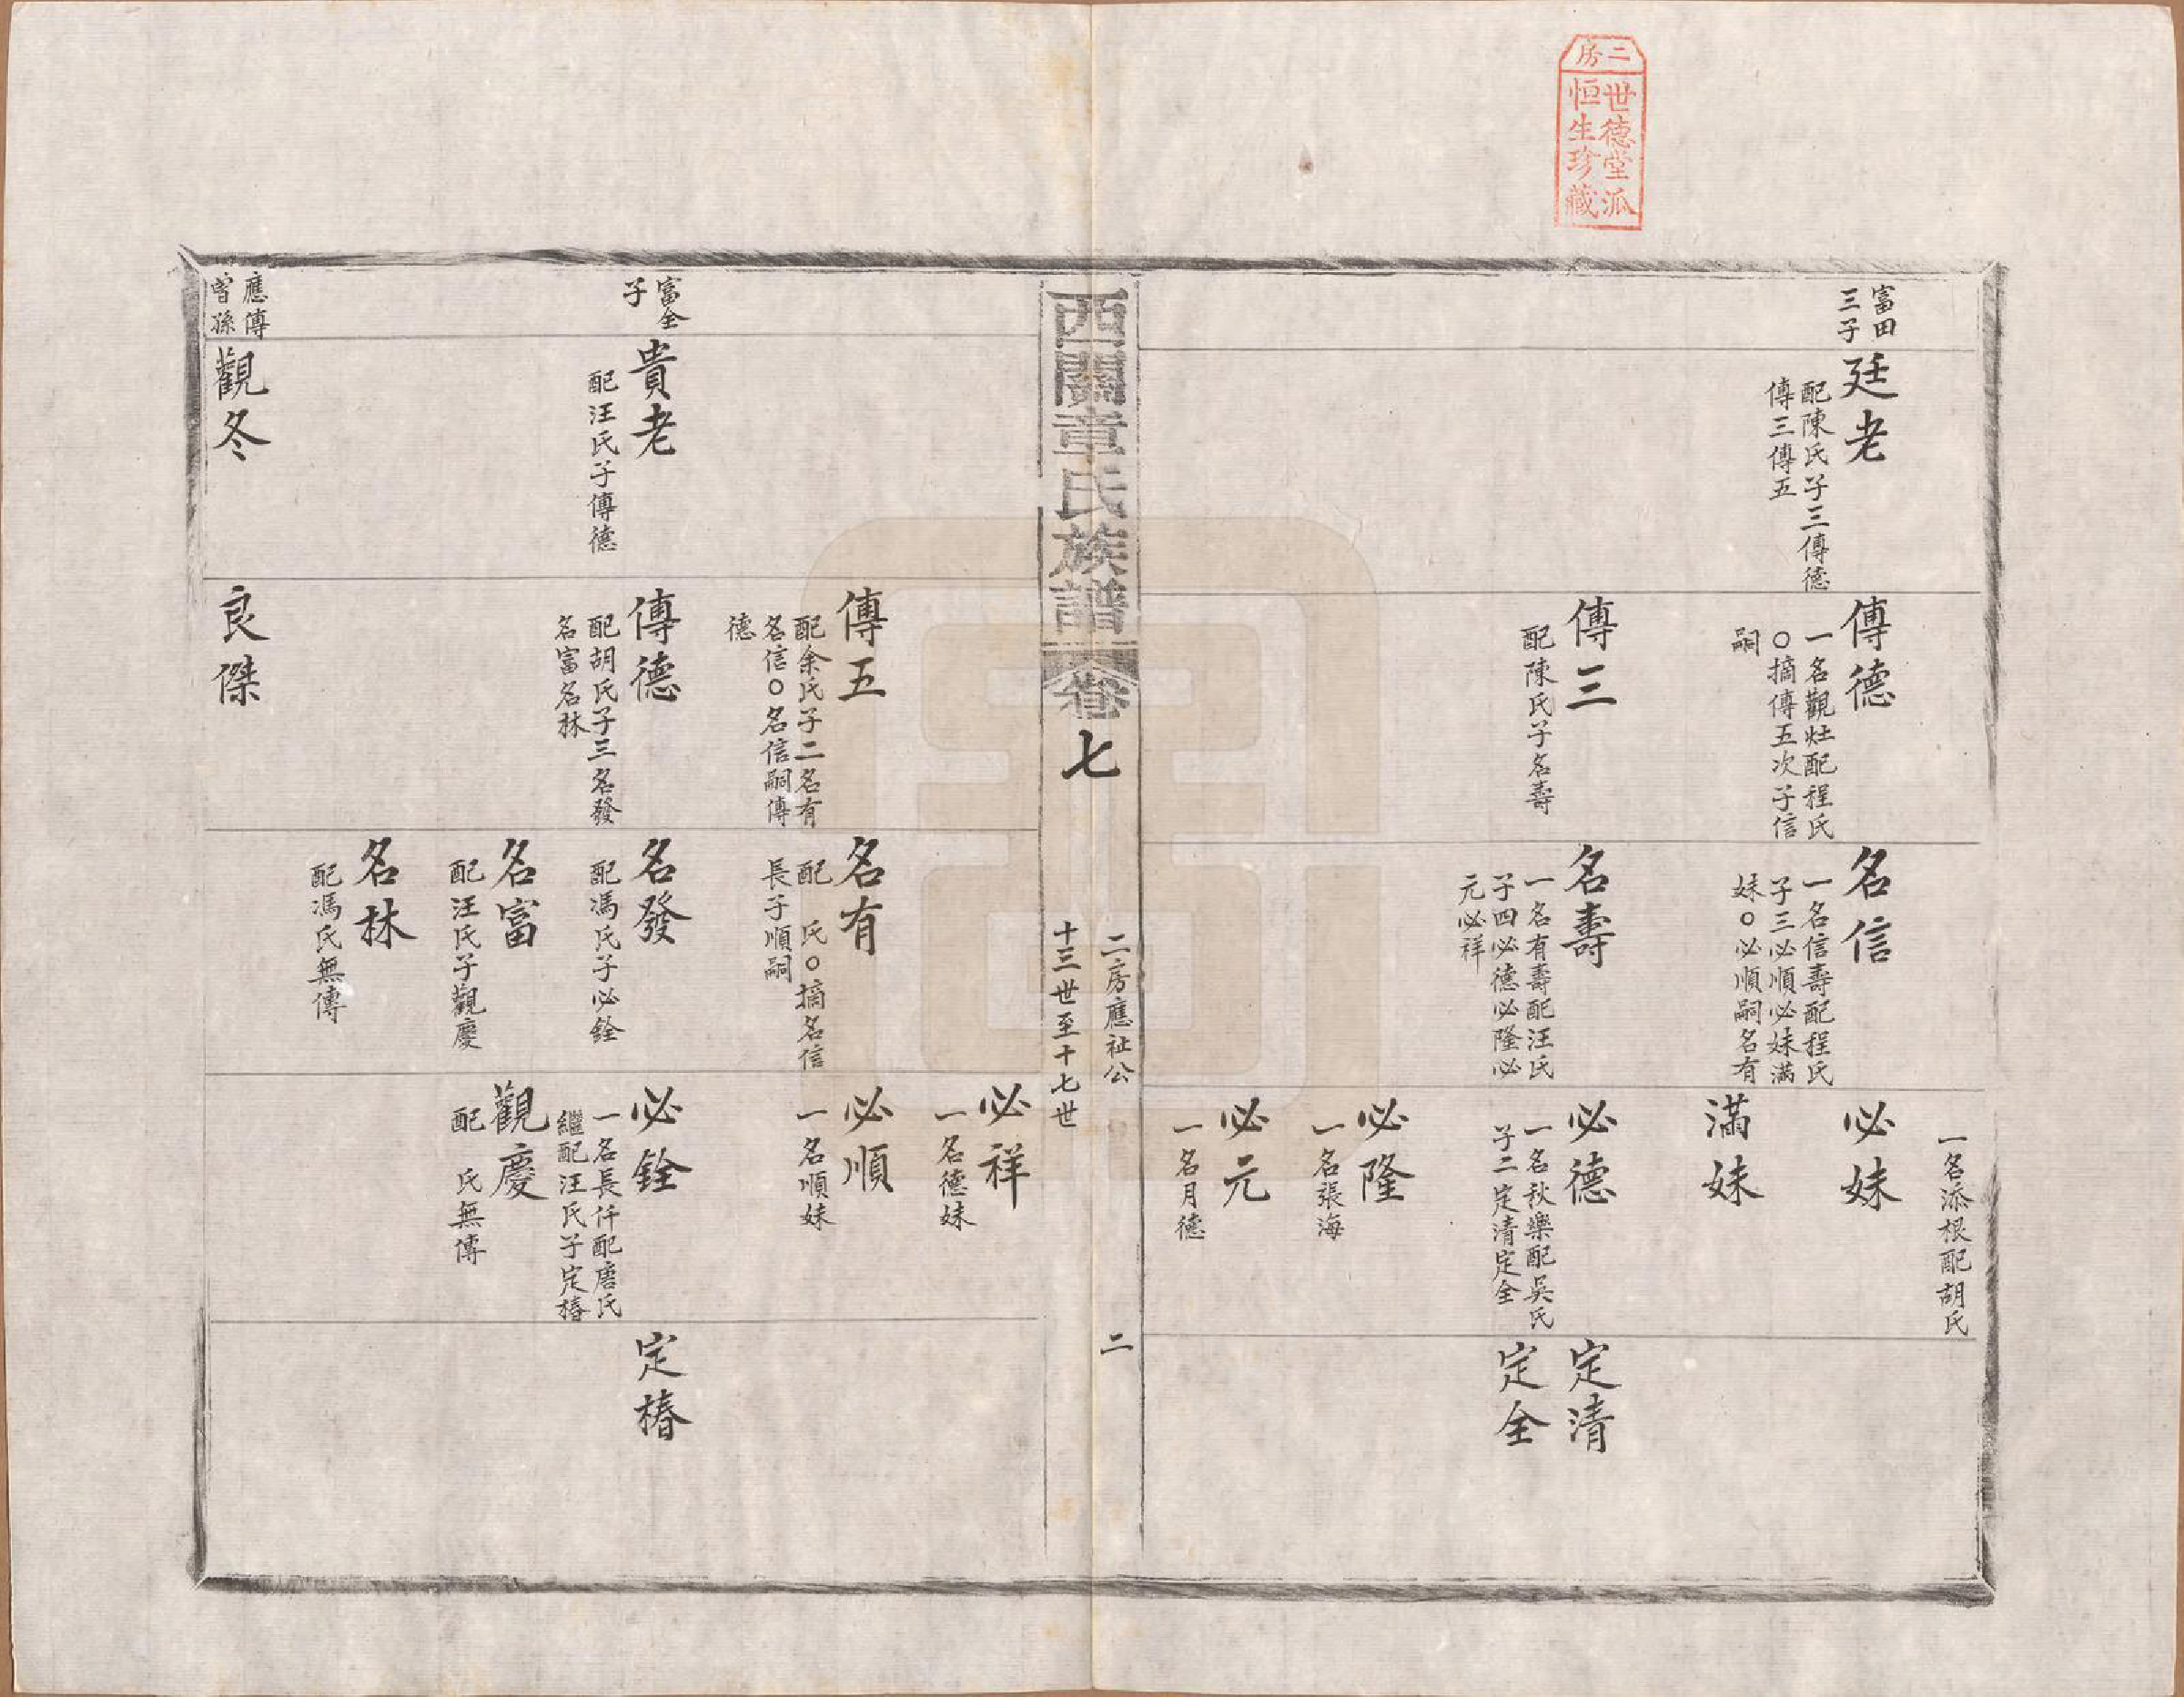 二房
世德堂派
恒生珍藏
一名添根配胡氏
富田
三子
廷老
配陳氏子三傳德
傳三傳五
傳德
一名觀灶配程氏
○摘傳五次子信
嗣
名信
一名信壽配程氏
子三必順必妹滿
妹○必順嗣名有
必妹
滿妹
傳三
配陳氏子名壽
名壽
一名有壽配汪氏
子四必德必隆必
元必祥
必德
一名秋樂配吳氏
子二定清定全
定清
定全
必隆
一名張海
必元
一名月德
西關章氏族譜
卷七
二房應祉公
十三世至十七世
二
必祥
一名德妹
傳五
配余氏子二名有
名信○名信嗣傳
德
名有
配 氏○摘名信
長子順嗣
必順
一名順妹
富全
子
貴老
配汪氏子傳德
傳德
配胡氏子三名發
名富名林
名發
配馮氏子必銓
必銓
一名長仟配唐氏
繼配汪氏子定椿
定椿
名富
配汪氏子觀慶
觀慶
配 氏無傳
名林
配馮氏無傳
應傳
曾孫
觀冬
良傑